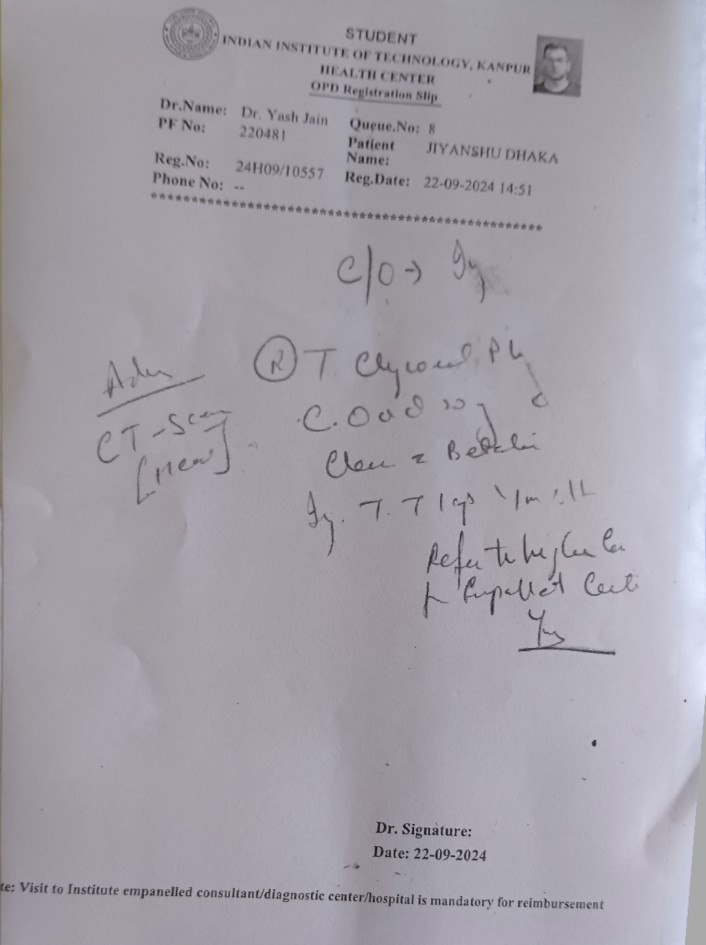 STUDENT
INDIAN INSTITUTE OF TECHNOLOGY, KANPUR
HEALTH CENTER
OPD Registration Slip
Dr.Name: Dr. Yash Jain Queue.No: 8
PF No: 220481 Patient Name: JIYANSHU DHAKA
Reg.No: 24H09/10557 Reg.Date: 22-09-2024 14:51
Phone No: --
*************************************************
C/O →
Adv
CT-Scan
[Head]
R T.
C.
Clean Betadin
Inj. T.T 1
Refer to higher
Yas
Dr. Signature:
Date: 22-09-2024
te: Visit to Institute empanelled consultant/diagnostic center/hospital is mandatory for reimbursement